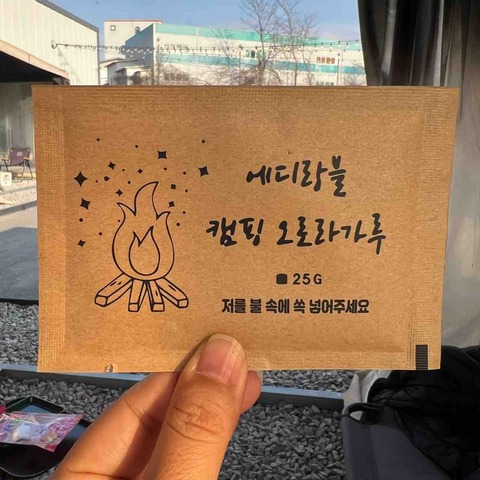 에디라블
캠핑 오로라가루
25G
저를 불 속에 쏙 넣어주세요